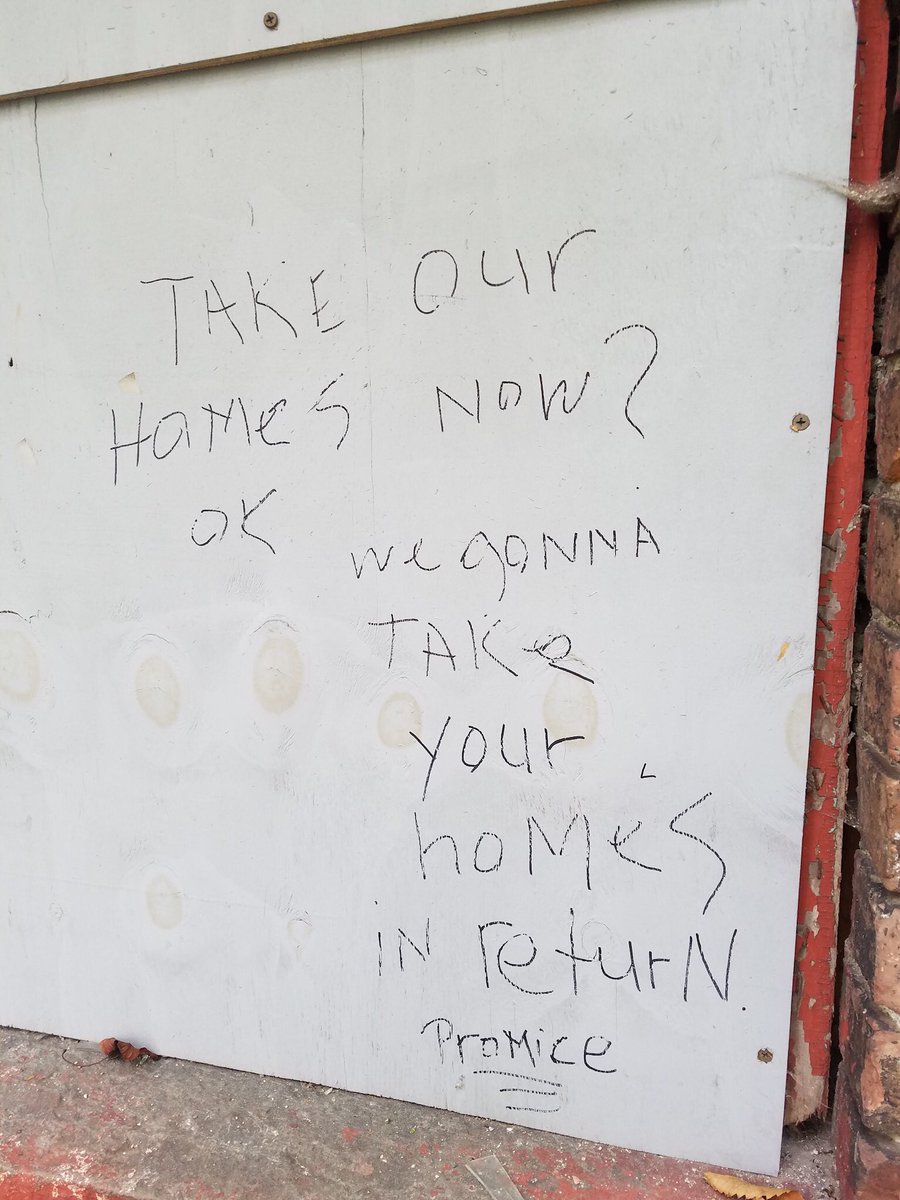 TAKE our
HOMES NOW?
OK we gonna
TAKe
your
homes
iN returN.
Promice